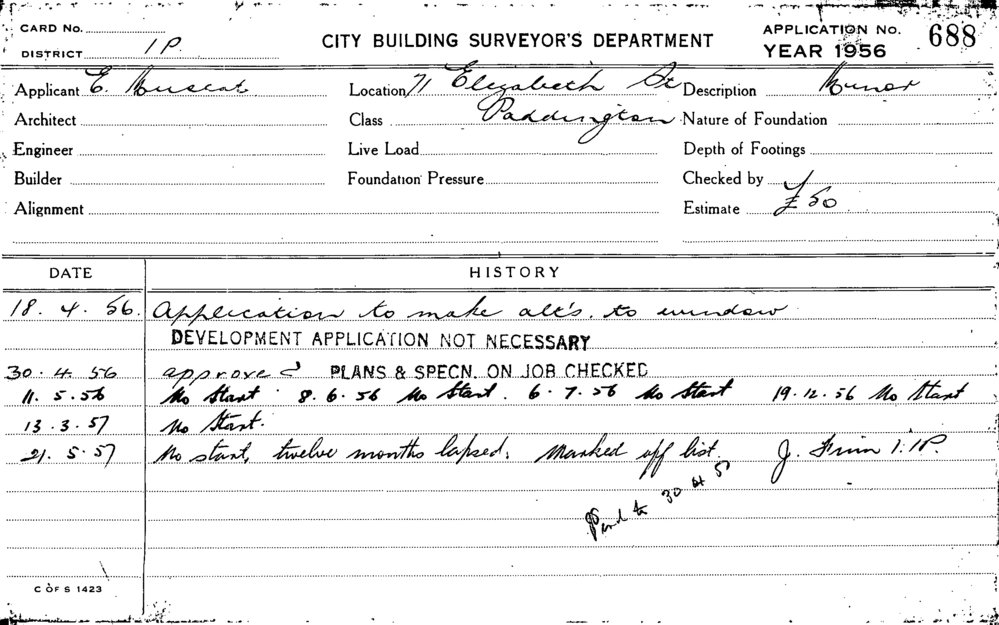 CARD No.
DISTRICT 1P.
CITY BUILDING SURVEYOR'S DEPARTMENT
APPLICATION No. 688
YEAR 1956
Applicant E. Muscat Location 71 Elizabeth St Description Minor
Architect Class Paddington Nature of Foundation
Engineer Live Load Depth of Footings
Builder Foundation Pressure Checked by
Alignment Estimate £50
DATE HISTORY
18. 4. 56. Application to make alt's. to window.
DEVELOPMENT APPLICATION NOT NECESSARY
30. 4. 56 approved PLANS & SPECN. ON JOB CHECKED
11. 5. 56 No Start 8. 6. 56 No Start. 6. 7. 56 No Start 19. 12. 56 No Start
13. 3. 57 No Start.
21. 5. 57 No start, twelve months lapsed. Marked off list. J. 1. 1P.
to 30
C OF S 1423